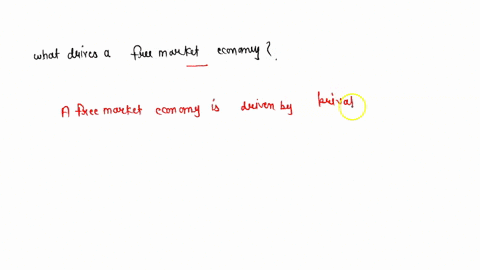 what drives a free market economy?.
A free market economy is driven by privat